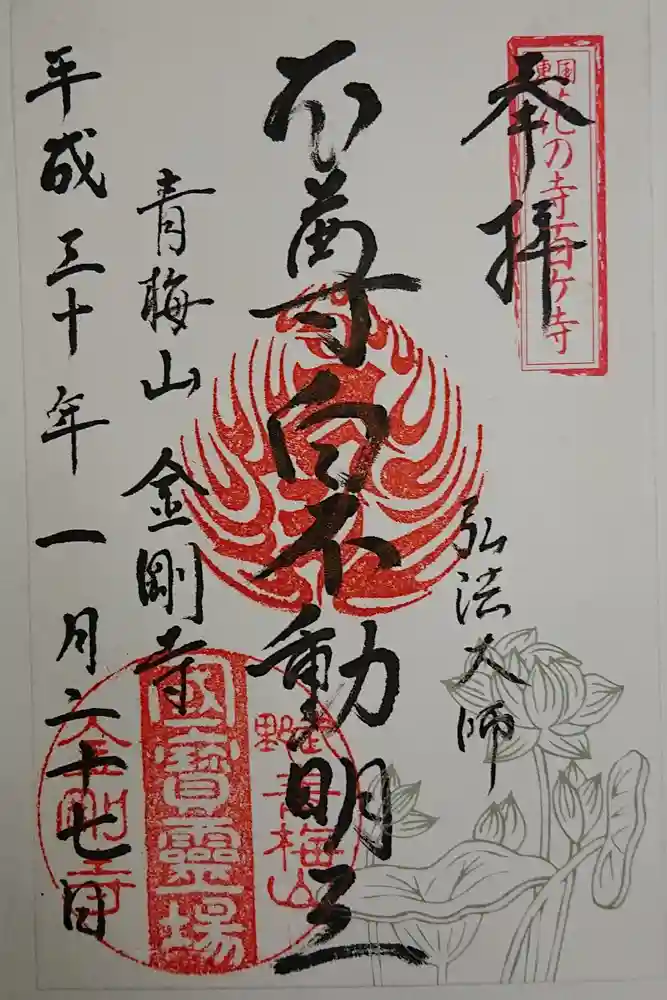 奉拝
東国花の寺百ケ寺
弘法大師
本尊白不動明王
青梅山 金剛寺
平成三十年一月二十七日
武野青梅山
國寶靈場
金剛寺